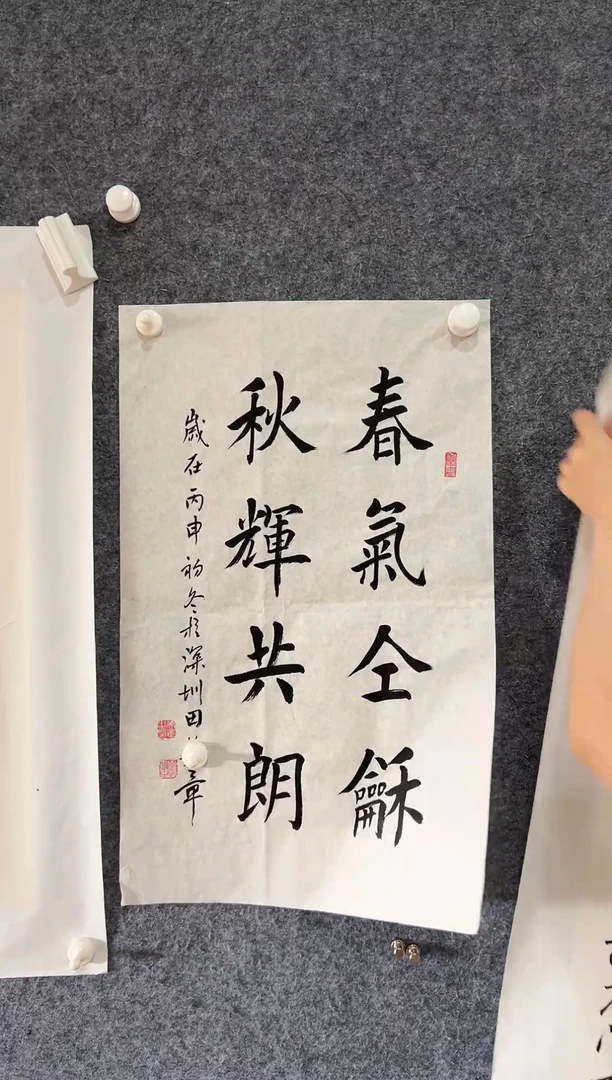 春氣仝龢
秋輝共朗
歲在丙申初冬於深圳田章